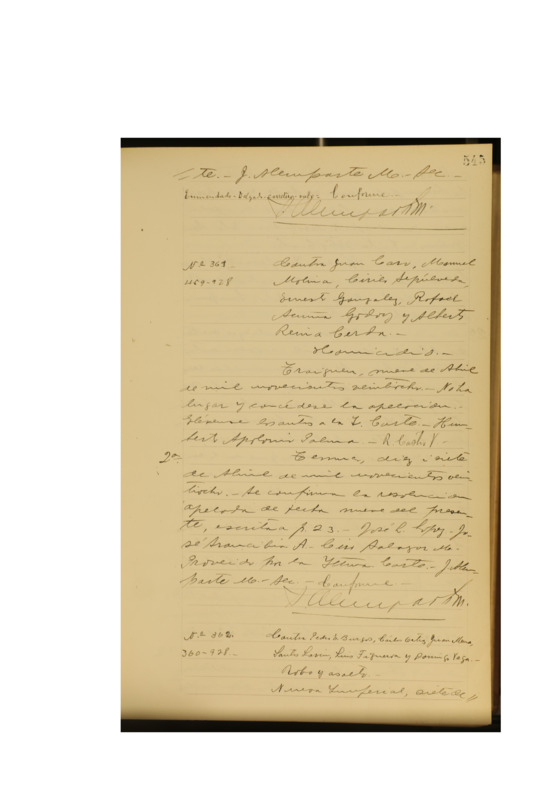 545
te. - J. Alemparte M. - Sec. -
Conforme -
J Alemparte M.
Nº 361. Contra Juan Caro, Manuel
459-928 Molina, Cirilo Sepúlveda,
Ernesto Gonzalez, Rafael
Acuña Godoy y Alberto
Cerda. -
Homicidio. -
Traiguen, nueve de Abril
de mil novecientos veintiocho. - No ha
lugar y concédese la apelacion. -
Elévense los autos a la I. Corte. - Hum-
berto Apolonio Palma - R. Castro V -
2ª Temuco, diez i siete
de Abril de mil novecientos vein
tiocho. - Se confirma la resolucion
apelada de fecha nueve del presen-
te, escrita a f. 23. - José L. Lopez - Jo-
sé Arancibia A. - Luis Salazar M. -
Proveido por la Iltma Corte. - J. Alem-
parte M - Sec - Conforme -
J Alemparte M.
Nº 362. Contra Pedro Burgos, Juan Mora,
360-928 - Luis Figueroa y Domingo Vega -
Robo y asalto -
Nueva Imperial, siete de